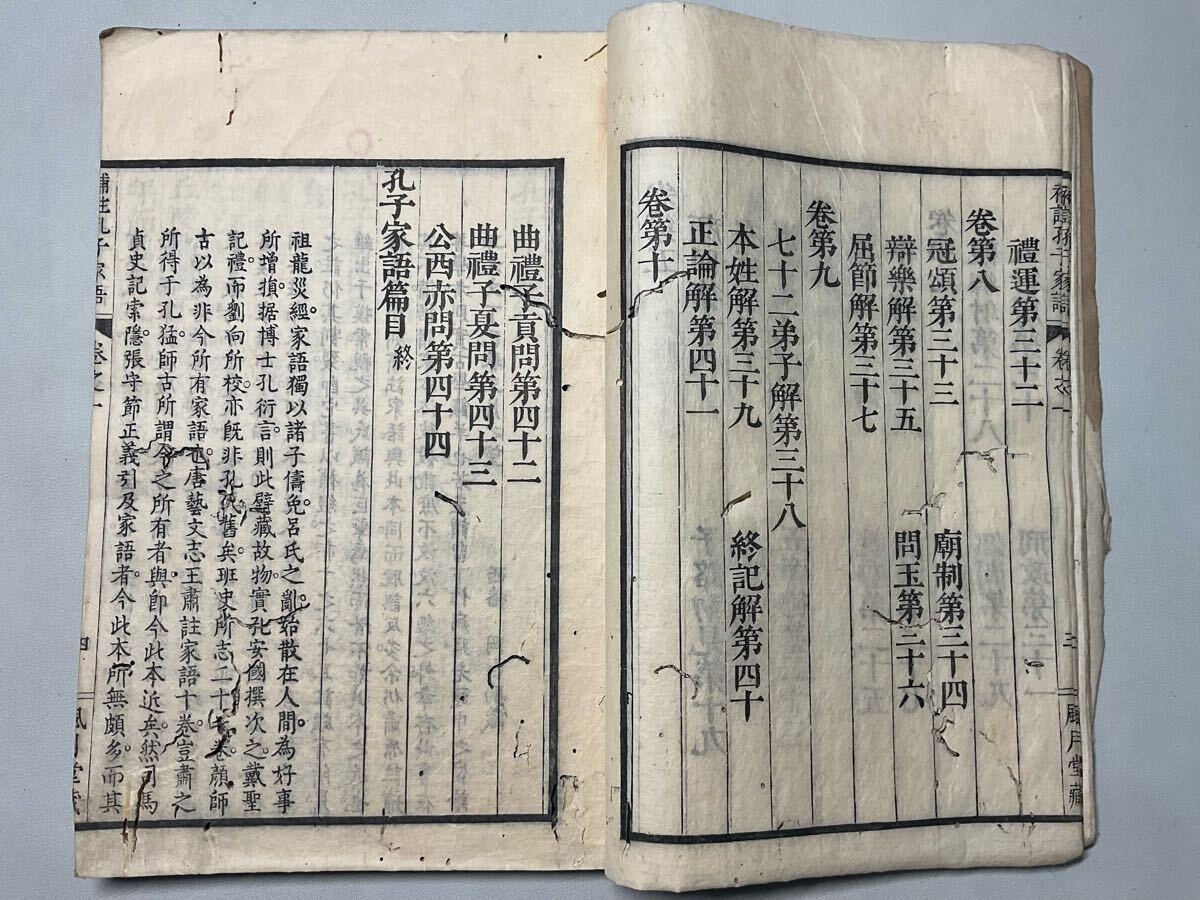 禮運第三十二
卷第八
冠頌第三十三 廟制第三十四
辯樂解第三十五 問玉第三十六
屈節解第三十七
卷第九
七十二弟子解第三十八
本姓解第三十九 終記解第四十
正論解第四十一
卷第十
曲禮子貢問第四十二
曲禮子夏問第四十三
公西赤問第四十四
孔子家語篇目 終
祖龍災經家語獨以諸子儔免呂氏之亂始散在人間為好事
所增損据博士孔衍言則此壁藏故物實孔安國撰次之戴聖
記禮而劉向所校亦旣非孔氏舊矣班史所志二十七卷顏師
古以為非今所有家語也唐藝文志王肅註家語十卷豈肅之
所得于孔猛師古所謂今之所有者與即今此本近矣然司馬
貞史記索隱張守節正義引及家語者今此本所無頗多而其
補註孔子家語 卷之一 四 風月堂藏